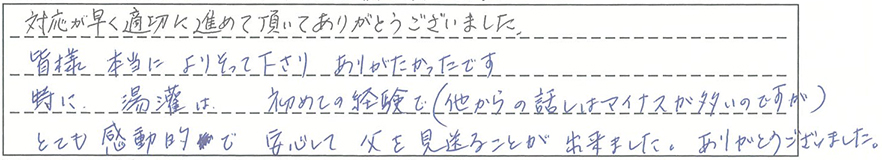 対応が早く適切に進めて頂いてありがとうございました。
皆様 本当に よりそって下さり ありがたかったです
時に、湯灌は、初めての経験で(他からの話しはマイナスが多いのですが)
とても感動的で 安心して 父を見送ることが 出来ました。ありがとうございました。